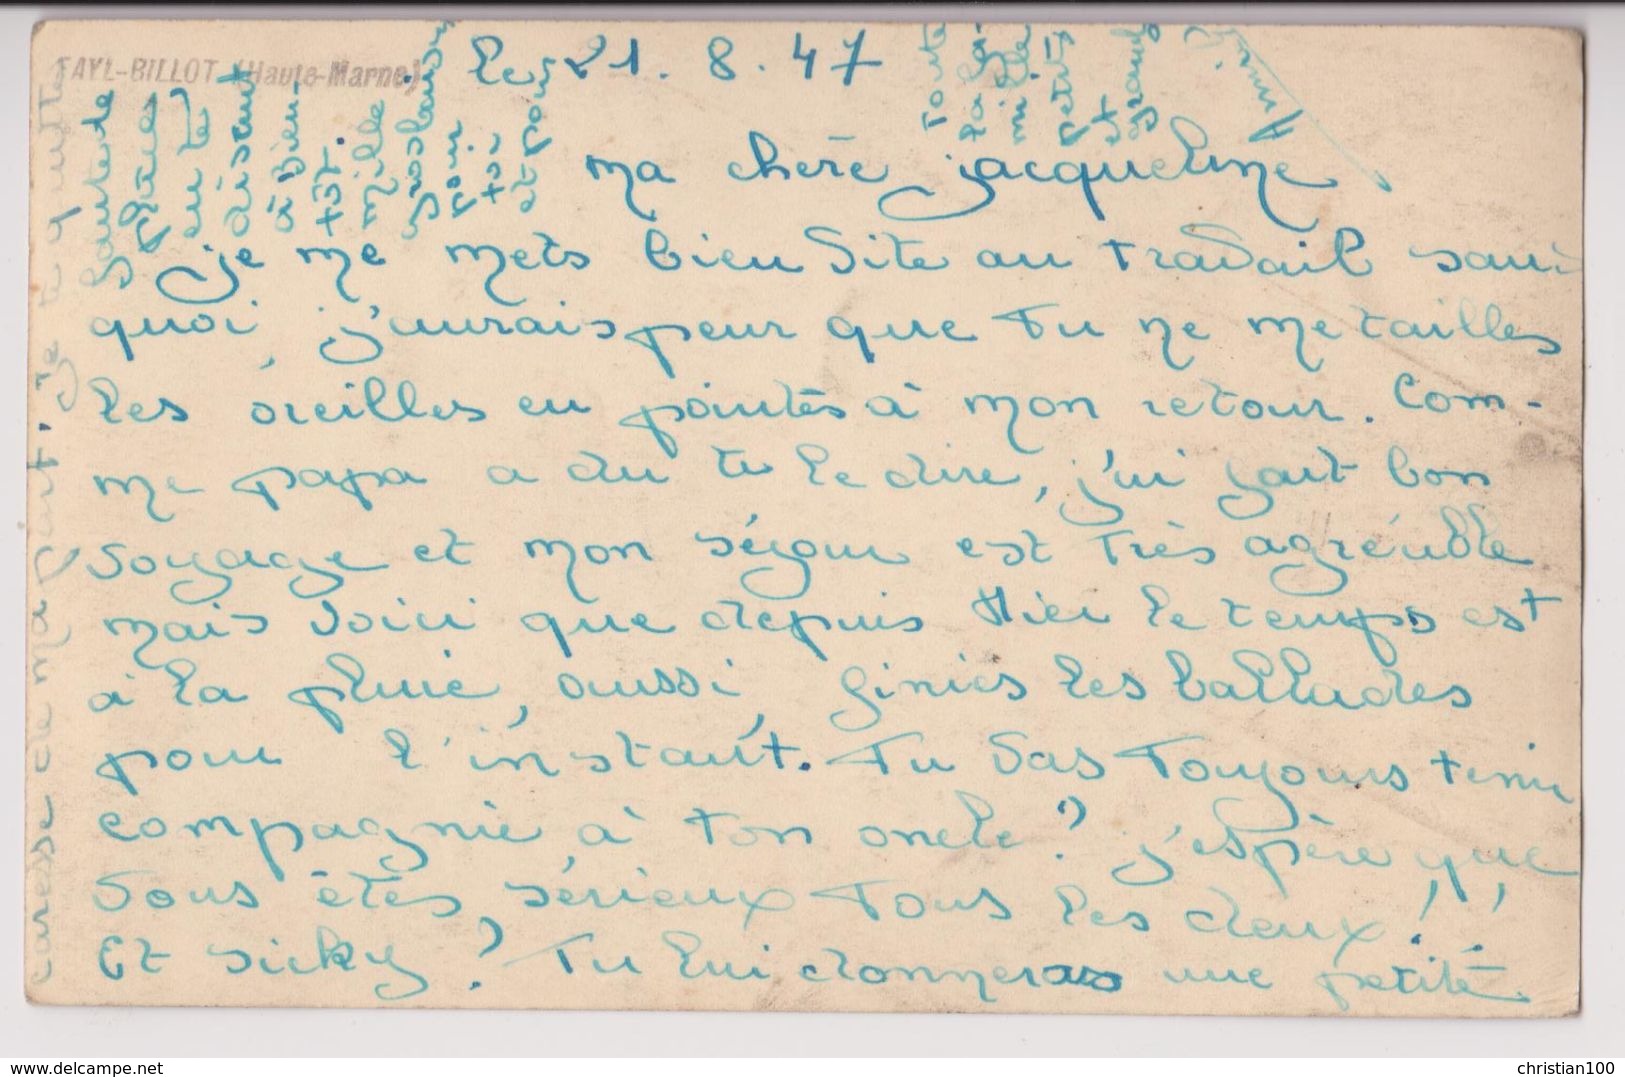 FAYL-BILLOT (Haute-Marne)
Le 21. 8. 47
ma chère jacqueline
je me mets bien vite au travail sans
quoi, j'aurais peur que tu ne me tailles
les oreilles en pointes à mon retour. Com-
me papa a du te le dire, j'ai fait bon
voyage et mon séjour est très agréable
mais voici que depuis Hier le temps est
à la pluie, aussi, finies les ballades
pour l'instant. Tu vas toujours tenir
compagnie à ton oncle? j'espère que
vous êtes sérieux tous les deux!!!
Et sicky? Tu lui donneras une petite
caresse de ma part. je te quitte
faute de
place
en te
disant
à Bien-
tôt.
mille
gros baisers
pour
toi
et pour
Toute
la fa-
mille
petits
et
grands